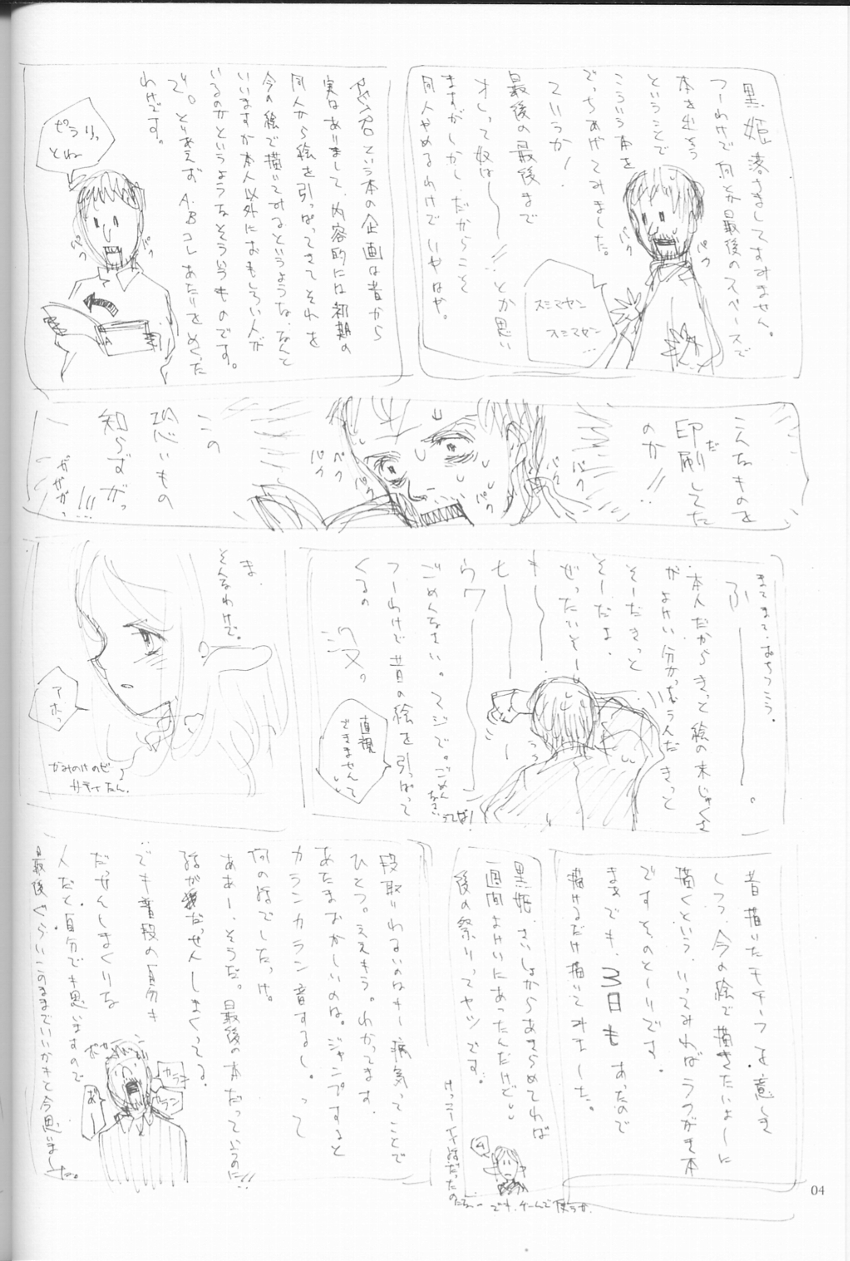 黒姫落ちましてすみません。
つーわけで何とか最後のスペースで
本を出そう
ということで
こういう本を
でっちあげてみました。
ていうか!
最後の最後まで
オレって奴は――!!とか思い
ますがしかし、だからこそ
同人やめるわけでいやはや。
スミマセン
スミマセン…
パク
パク
という本の企画は昔から
実はありまして、内容的には初期の
同人から絵を引っぱってきてそれを
今の絵で描いてみるというような、なんと
いいますか本人以外におもしろい人が
いるのかというようなそういうものです。
で。とりあえずA・Bコレあたりをめくった
わけです。
ピラりっ
とねー
パク
パク
A
こんなものを
印刷してた
だ
のか!!
この
恐いもの
知らずがっ
!!!
パク
パク
パク
パク
まてまて、おちつこう。
ふ――――。
本人だからきっと絵の未じゅくさ
がよけい分かっちゃうんだきっと
そーだきっと
そーだよ、
ぜったいそー
ごめんなさい。マジで。ごめん
なさいってば!
つーわけで昔の絵を引っぱって
くるの
没っ。
直視
できませんて
ま、
そんなわけで。
アホっ
かみのけのピ
サティたん。
昔描いたモチーフを意しき
しつつ、今の絵で描きたいよーに
描くという、いってみればらくがき本
ですそのとーりです。
まあでも、3日もあったので
描けるだけ描いてみました。
黒姫、さいしょからあきらめてれば
一週間よけいにあったんだけど…
後の祭りってヤツです。
ム
でも、ゲームで使うか、
段取りわるいのはもー病気ってことで
ひとつ。ええもう。わかってます。
あたまおかしいのは。ジャンプすると
カランカラン音するし。って
何の話でしたっけ。
ああー、そうだ。最後の本だっていうのに!!
話がだっせんしまくってる。
でも普段の自分も
だっせんしまくりな
人だと自分でも思いますので
最後ぐらいこのままでいいかもと今思いました。
カラン
カラン
あー
04